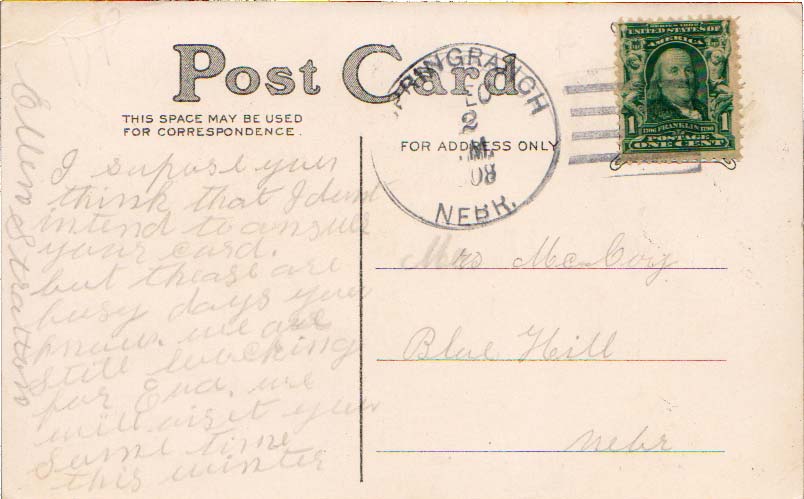 Post Card
THIS SPACE MAY BE USED
FOR CORRESPONDENCE.
FOR ADDRESS ONLY
SPRINGRANCH
DEC
2
M.
08
NEBR.
SERIES 1902
UNITED STATES OF
AMERICA
1706 FRANKLIN 1790
POSTAGE
1 ONE CENT 1
I supose your
think that I dont
intend to ansure
your card.
but thease are
busy days you
know. we are
still husking
for End. we
will visit you
some time
this winter
Ellen Stratton
Mrs McCoy
Blue Hill
Nebr